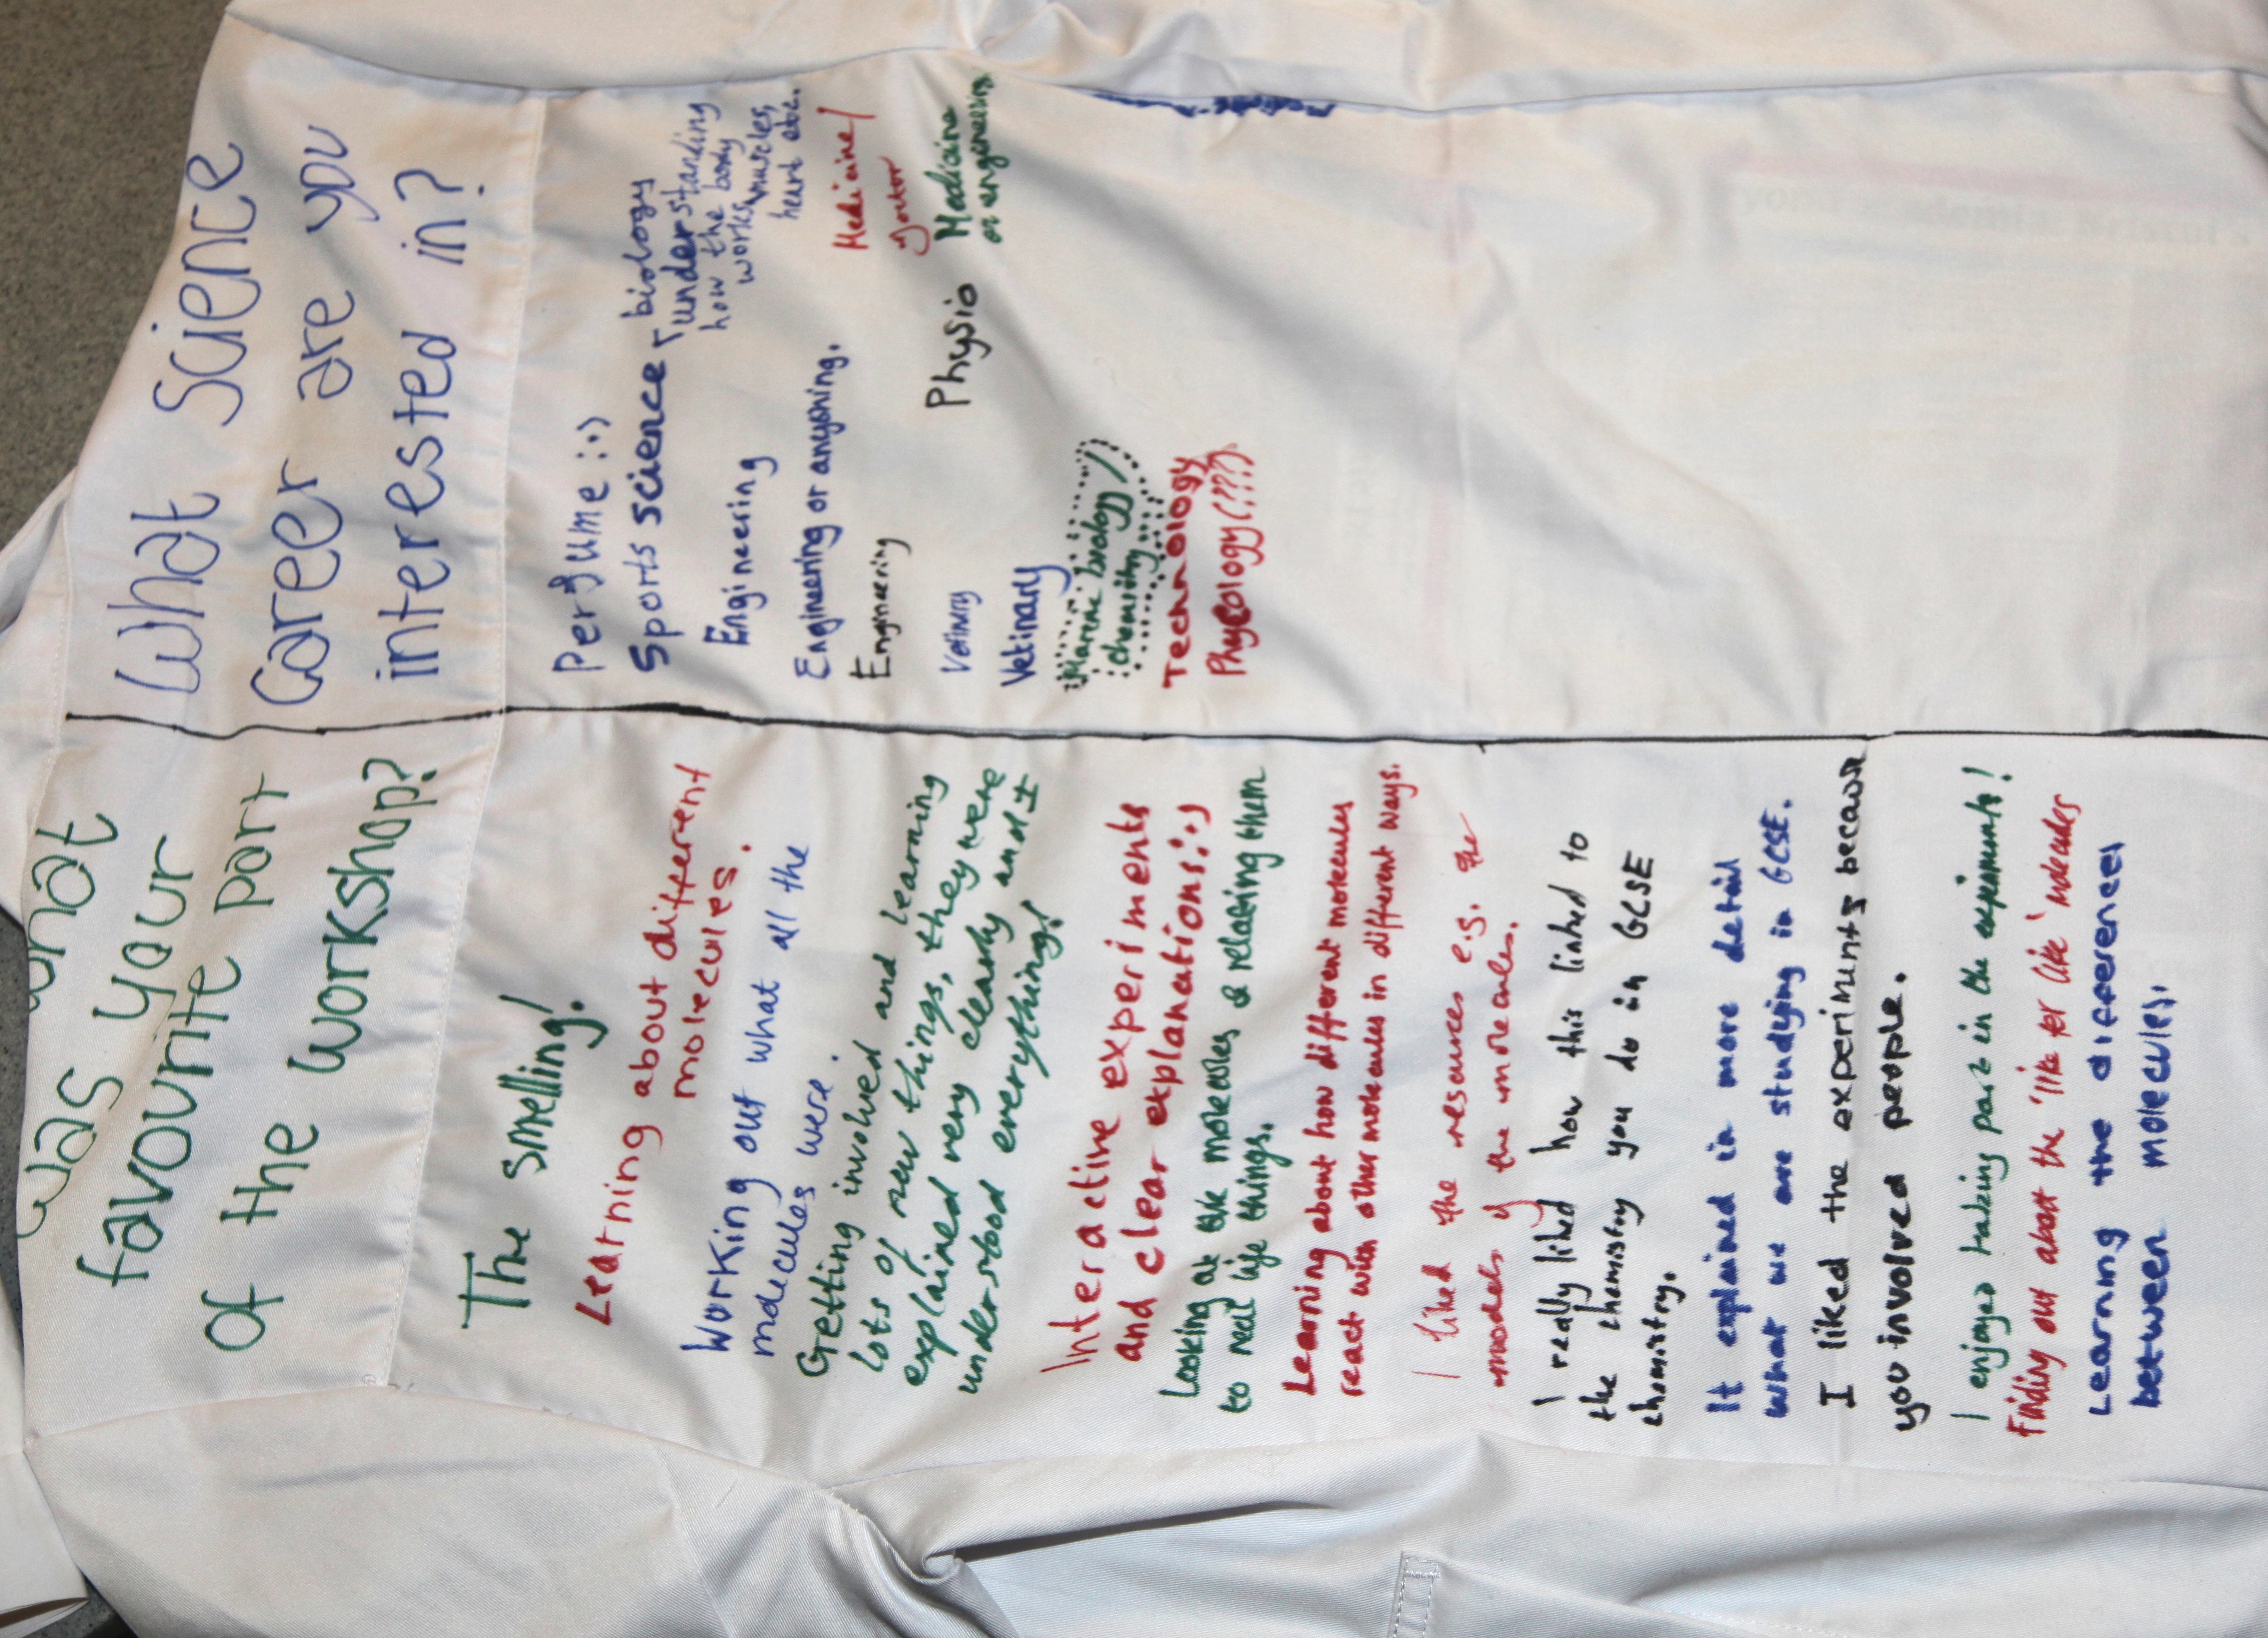 What
was your
favourite part
of the workshop?
The smelling!
Learning about different
molecules.
Working out what all the
molecules were.
Getting involved and learning
lots of new things, they were
explained very clearly and I
understood everything!
Interactive experiments
and clear explanations :)
Looking at the molecules & relating them
to real life things.
Learning about how different molecules
react with other molecules in different ways.
I liked the resources e.g. the
models of the molecules.
I really liked how this linked to
the chemistry you do in GCSE
chemistry.
It explained in more detail
what we are studying in GCSE.
I liked the experiments because
you involved people.
I enjoyed taking part in the experiments!
Finding out about the 'like for like' molecules
Learning the differences
between molecules.
What science
Career are you
interested in?
Perfume :)
Sports science - biology
understanding
how the body
works, muscles,
heart etc.
Engineering
Engineering or anyoning.
Medicine/
doctor
Engineering
Physio
Medicine
or engineering
Vetinary
Marine biology/
chemistry
Technology
Phycology (???)